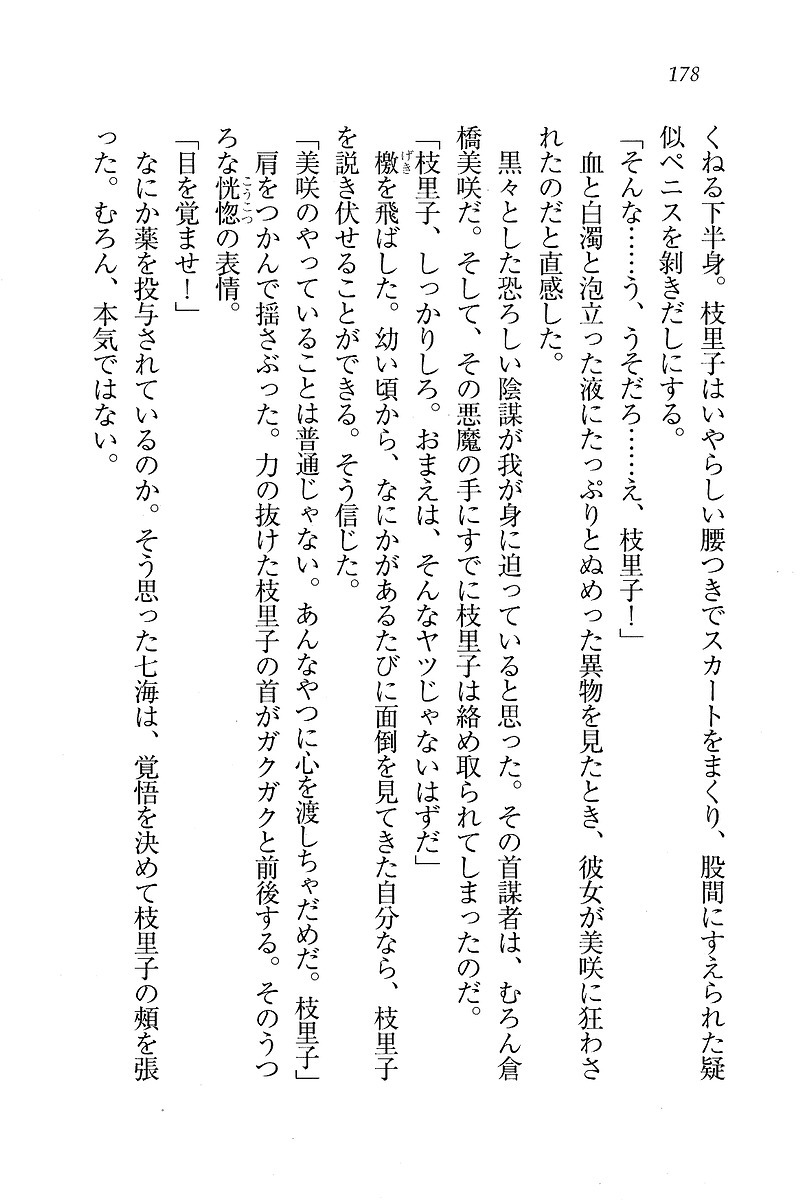 178
くねる下半身。枝里子はいやらしい腰つきでスカートをまくり、股間にすえられた疑
似ペニスを剥きだしにする。
「そんな……う、うそだろ……え、枝里子！」
血と白濁と泡立った液にたっぷりとぬめった異物を見たとき、彼女が美咲に狂わさ
れたのだと直感した。
黒々とした恐ろしい陰謀が我が身に迫っていると思った。その首謀者は、むろん倉
橋美咲だ。そして、その悪魔の手にすでに枝里子は絡め取られてしまったのだ。
「枝里子、しっかりしろ。おまえは、そんなヤツじゃないはずだ」
檄を飛ばした。幼い頃から、なにかがあるたびに面倒を見てきた自分なら、枝里子
を説き伏せることができる。そう信じた。
「美咲のやっていることは普通じゃない。あんなやつに心を渡しちゃだめだ。枝里子」
肩をつかんで揺さぶった。力の抜けた枝里子の首がガクガクと前後する。そのうつ
ろな恍惚の表情。
「目を覚ませ！」
なにか薬を投与されているのか。そう思った七海は、覚悟を決めて枝里子の頬を張
った。むろん、本気ではない。